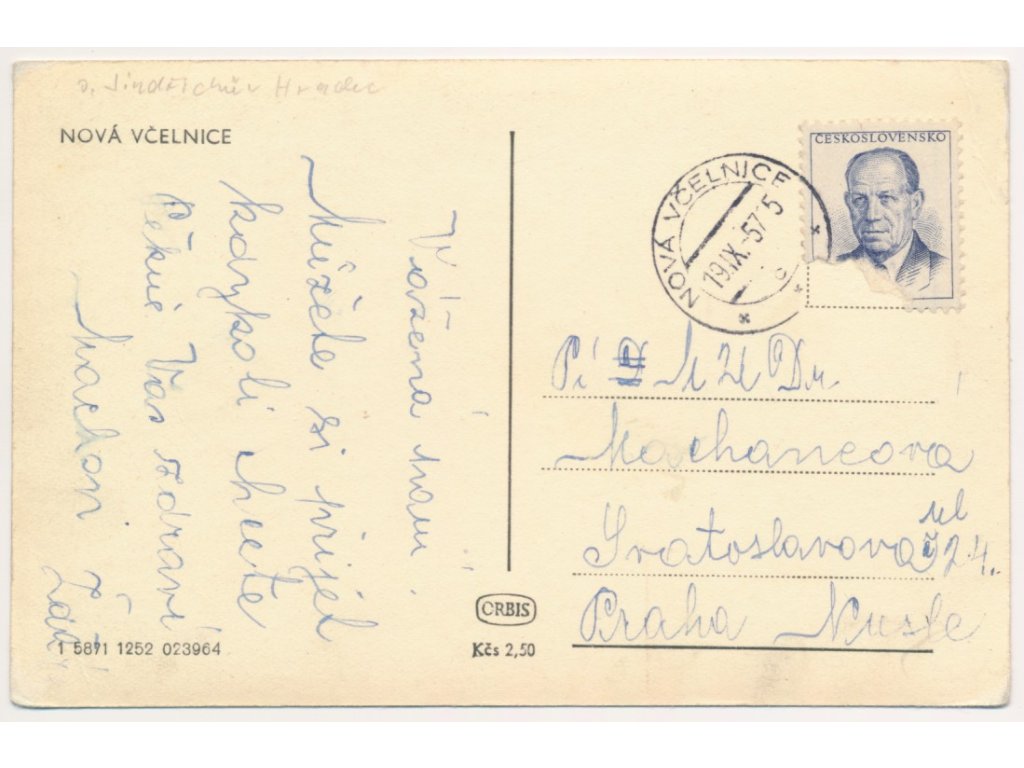 o. Jindřichův Hradec
NOVÁ VČELNICE
Vážená paní!
Můžete si přijet
kdykoli chcete
Pěkně Vás zdraví
ORBIS
Kčs 2,50
1 5871 1252 023964
ČESKOSLOVENSKO
NOVÁ VČELNICE
19.IX.57.15
c
Pí MUDr.
Machancova
Svatoslavova ul
č 24.
Praha Nusle